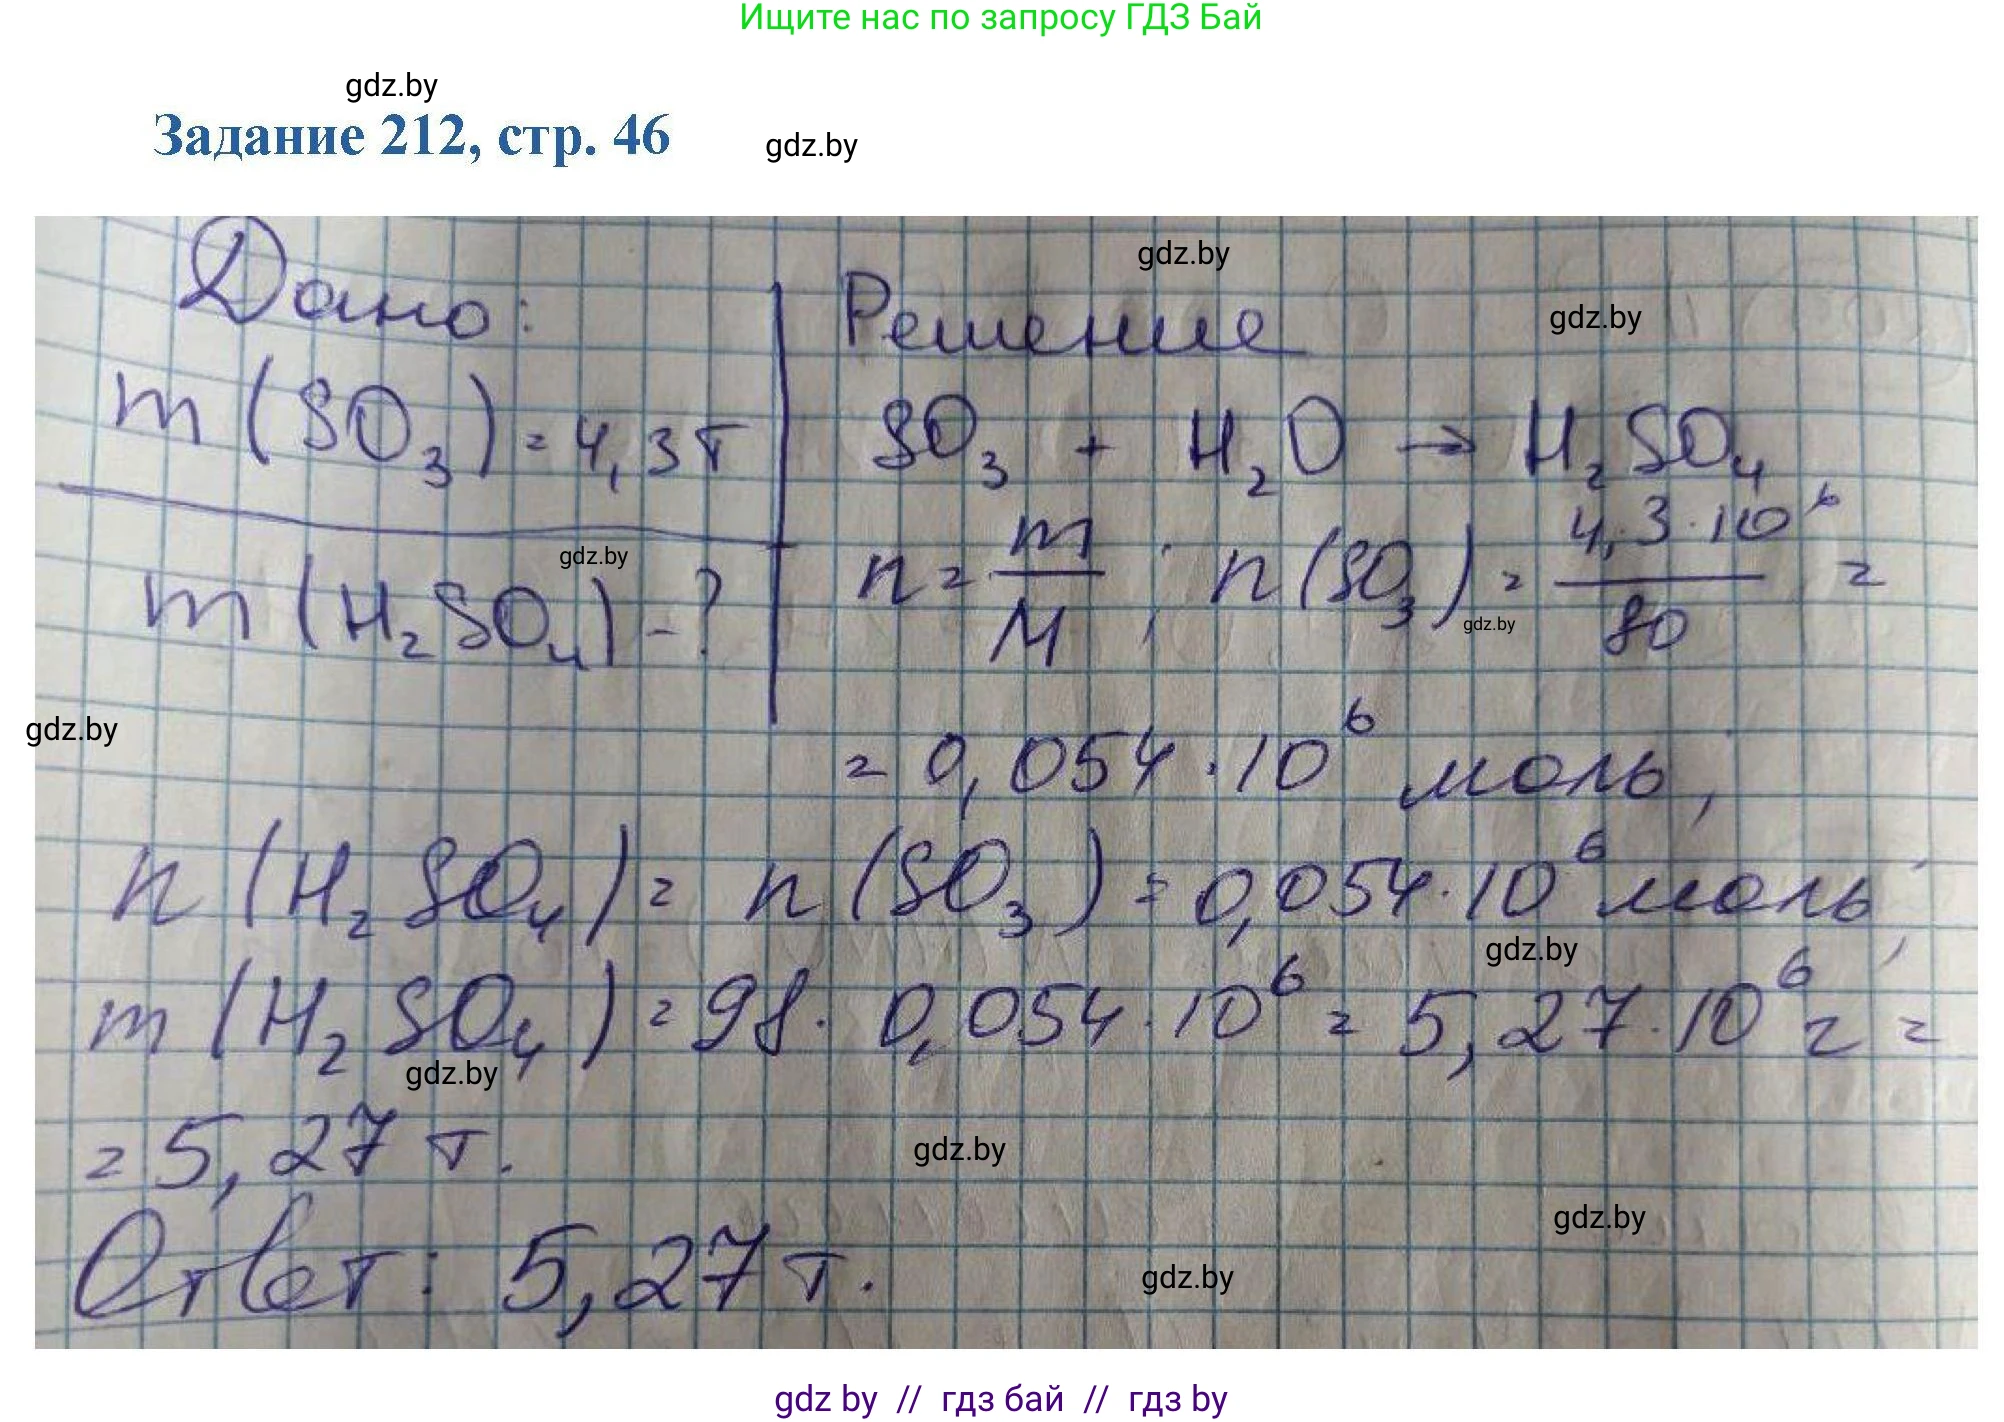 Ищите нас по запросу ГДЗ Бай
gdz.by
Задание 212, стр. 46
gdz.by
gdz.by
Дано:
Решение
gdz.by
m(SO₃) = 4,3 т
SO₃ + H₂O → H₂SO₄
gdz.by
m(H₂SO₄) - ?
n = m/M ; n(SO₃) = 4,3·10⁶/80 =
gdz.by
gdz.by
= 0,054·10⁶ моль;
n(H₂SO₄) = n(SO₃) = 0,054·10⁶ моль;
gdz.by
m(H₂SO₄) = 98·0,054·10⁶ = 5,27·10⁶ г =
gdz.by
= 5,27 т.
gdz.by
gdz.by
Ответ: 5,27 т.
gdz.by
gdz by // гдз бай // гдз by